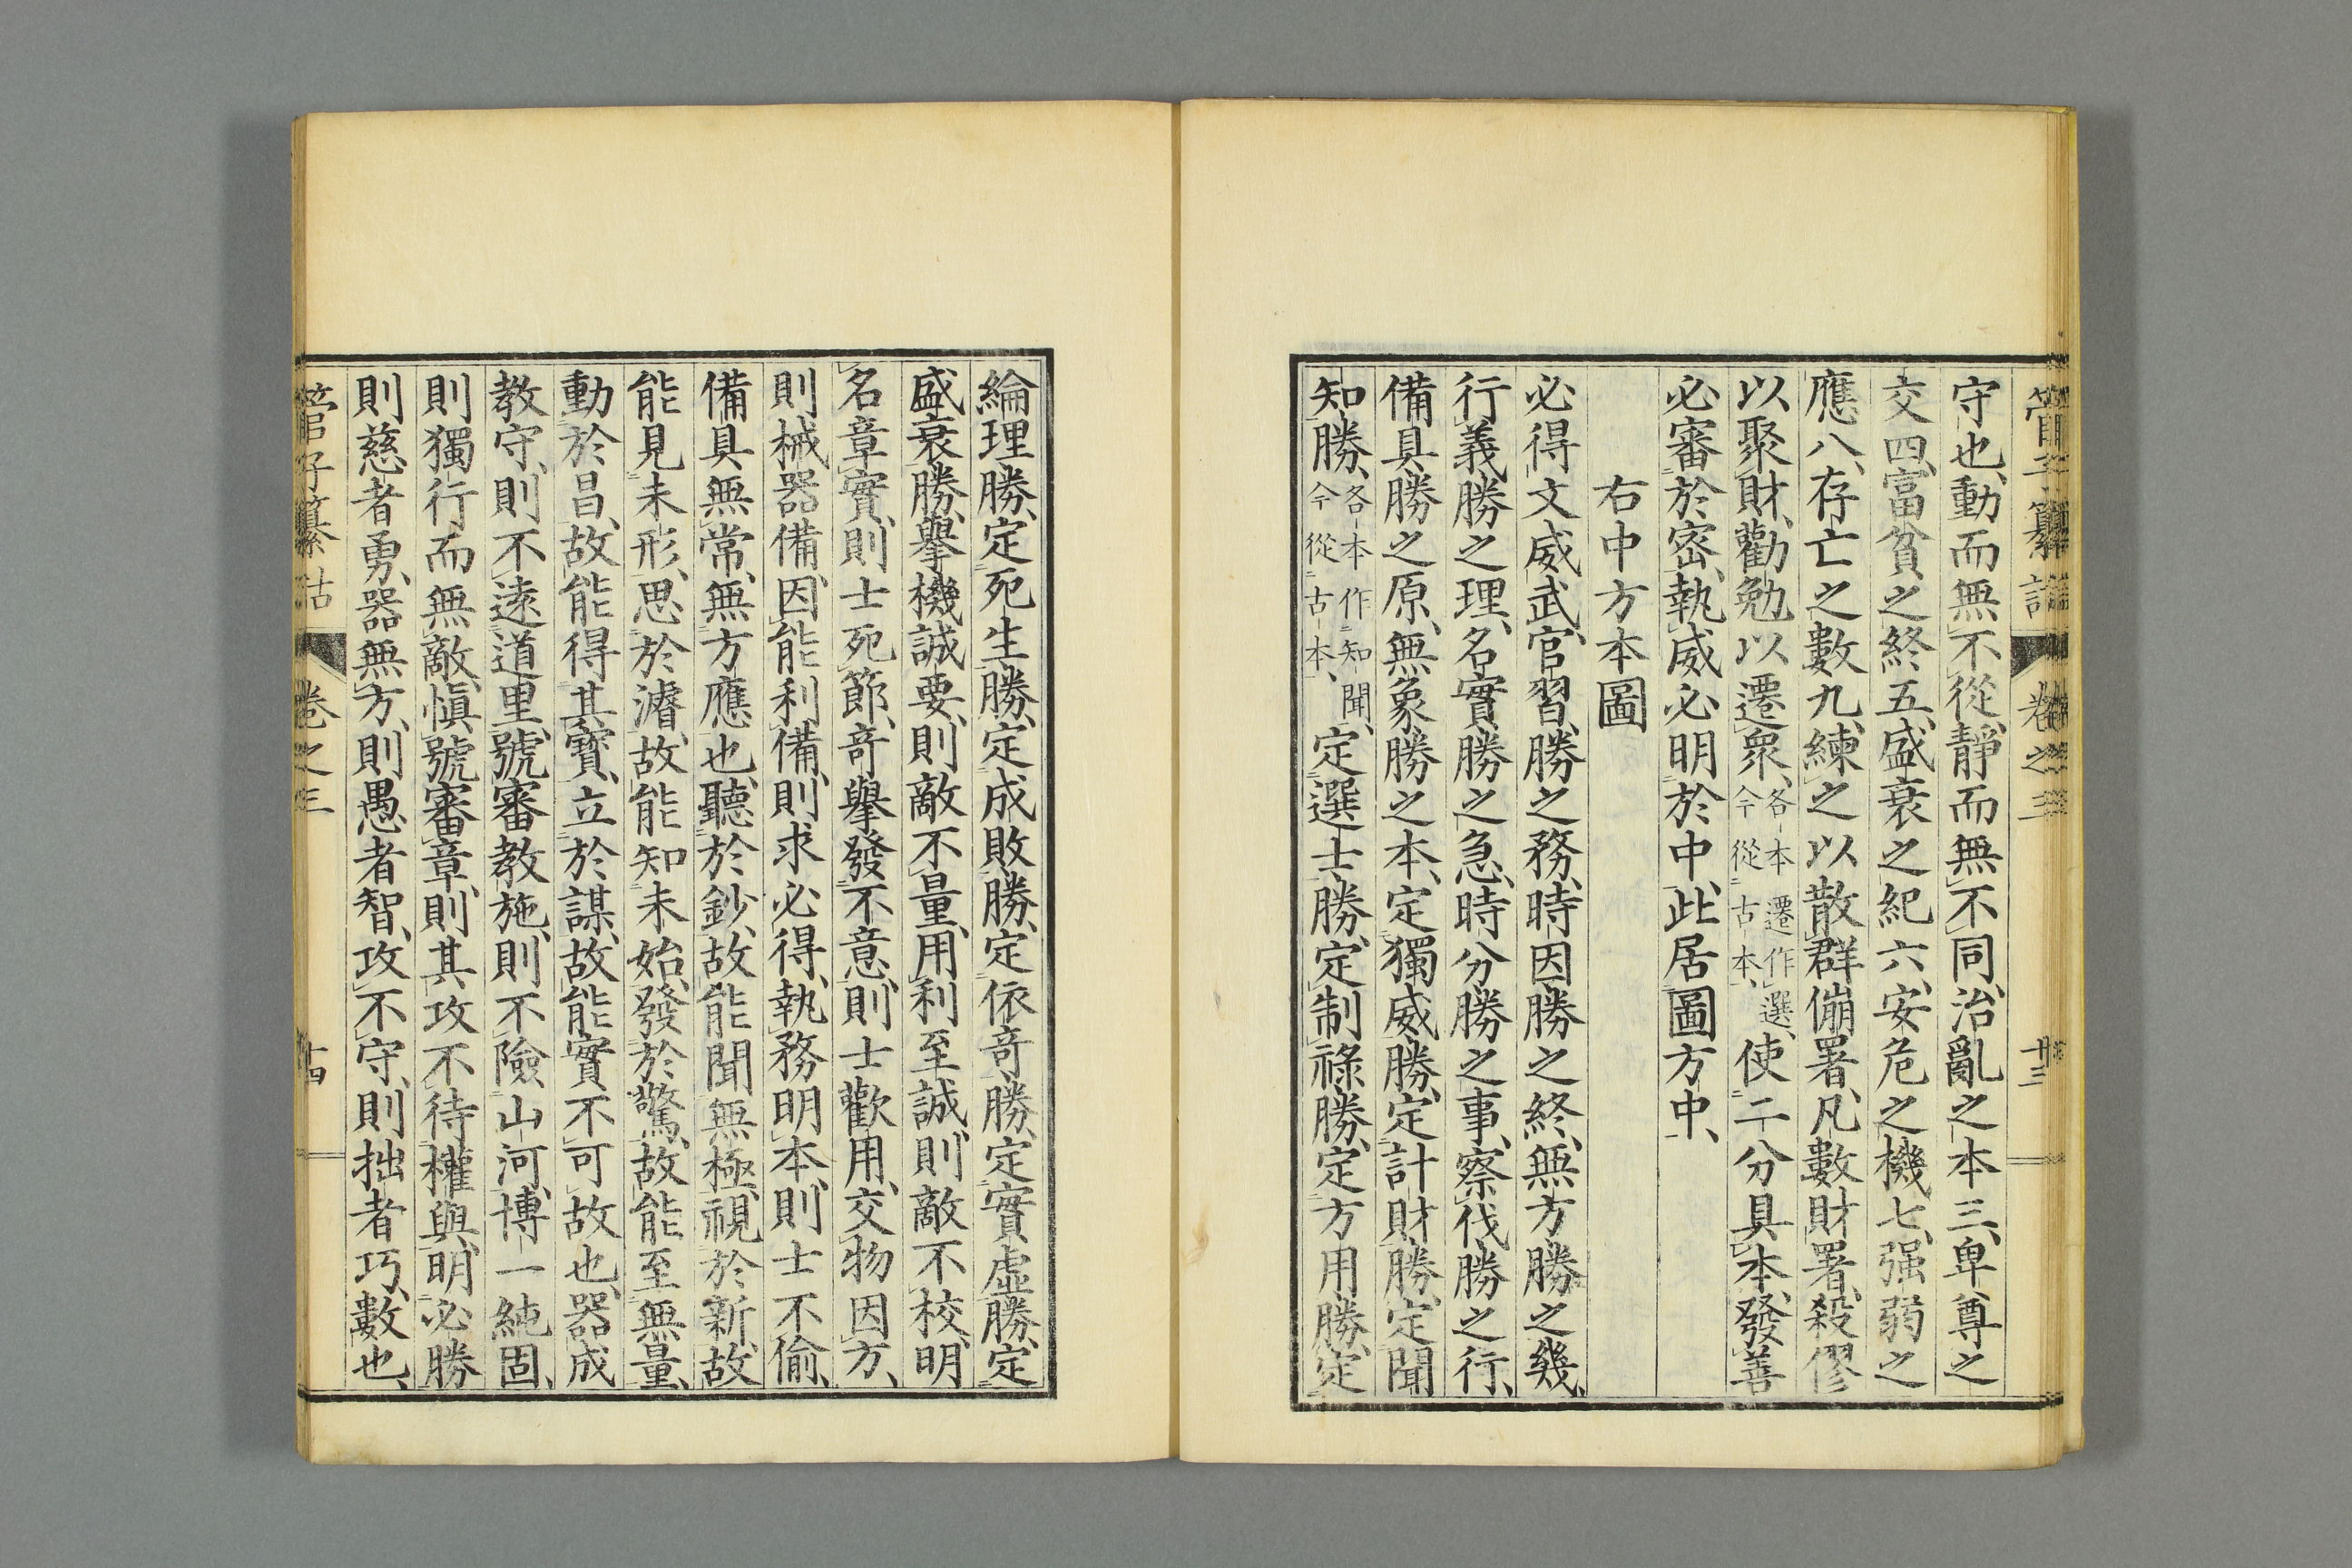 管子纂詁 卷之三 廿三
守也、動而無不從、靜而無不同、治亂之本三、卑尊之
交四、富貧之終五、盛衰之紀六、安危之機七、强弱之
應八、存亡之數九、練之以散群傰署、凡數財署、殺僇
以聚財、勸勉以遷衆、各本遷作選、今從古本、使二分具本、發善
必審於密、執威必明於中、此居圖方中、
右中方本圖
必得文威武、官習、勝之務、時因、勝之終、無方、勝之幾、
行義、勝之理、名實、勝之急、時分、勝之事、察伐、勝之行、
備具、勝之原、無象、勝之本、定獨威勝、定計財勝、定聞
知勝、各本作知聞、今從古本、定選士勝、定制祿勝、定方用勝、定
綸理勝、定死生勝、定成敗勝、定依奇勝、定實虛勝、定
盛衰勝、擧機誠要、則敵不量、用利至誠、則敵不校、明
名章實、則士死節、奇擧發不意、則士歡用、交物因方、
則械器備、因能利備、則求必得、執務明本、則士不偷、
備具無常、無方應也、聽於鈔、故能聞無極、視於新、故
能見未形、思於濬、故能知未始、發於驚、故能至無量、
動於昌、故能得其寶、立於謀、故能實不可故也、器成
教守、則不遠道里、號審教施、則不險山河、博一純固、
則獨行而無敵、愼號審章、則其攻不待權與、明必勝
則慈者勇、器無方、則愚者智、攻不守、則拙者巧、數也、
管子纂詁 卷之三 十四